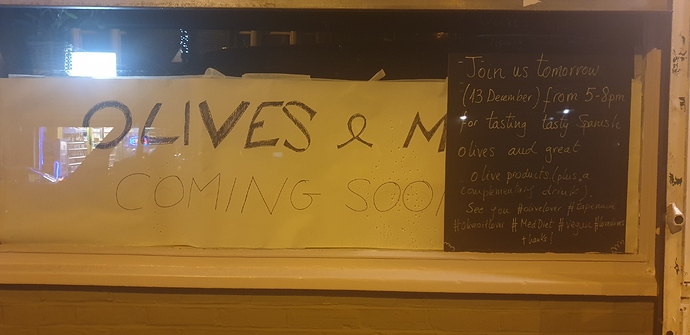 OLIVES & M
COMING SOO
Join us tomorrow
(13 December) from 5-8pm
for tasting tasty Spanish
olives and great
olive products (plus a
complimentary drink)
See you #olivelover
#oliveoillover #MedDiet #vegan
thanks!